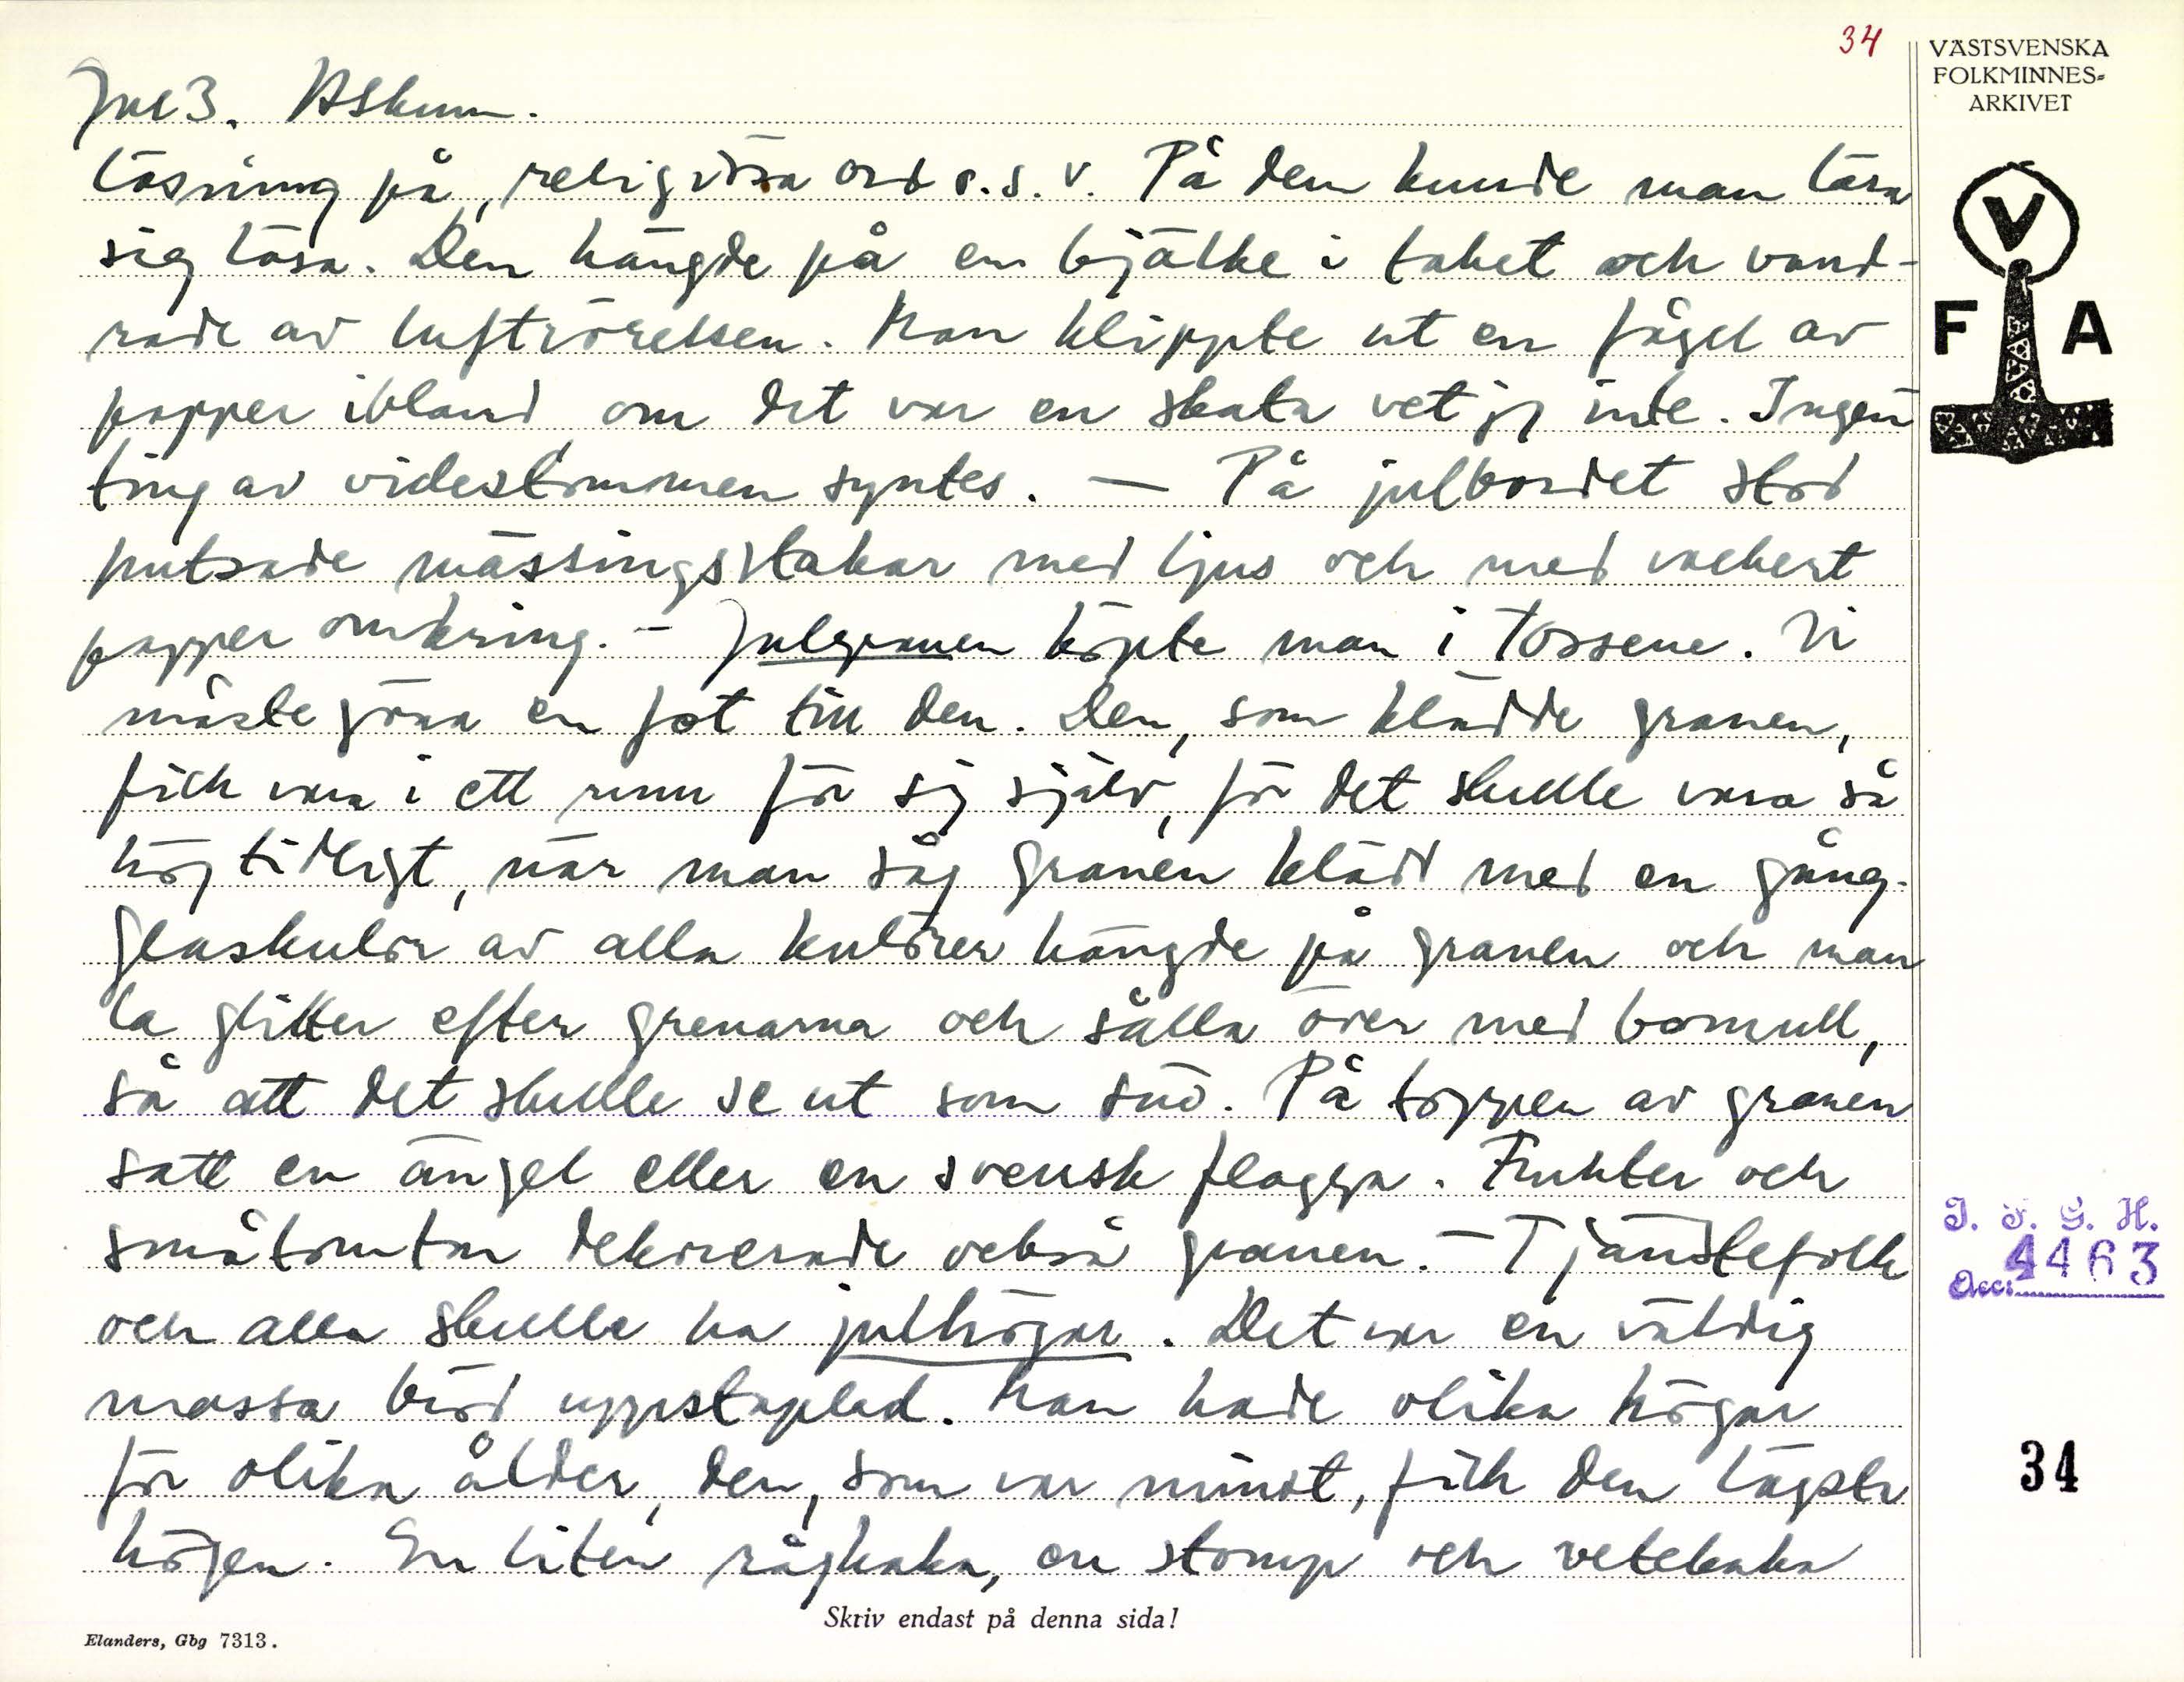 34
VÄSTSVENSKA
FOLKMINNES-
ARKIVET
V
F A
Jul 3. Askum.
läsning på, religiösa ord o.s.v. På dem kunde man lära
sig läsa. Den hängde på en bjälke i taket och vand-
rade av luftrörelsen. Man klippte ut en fågel av
papper ibland, om det var en skata vet jg inte. Ingen
ting av videstommen syntes. — På julbordet stod
putsade mässingsstakar med ljus och med vackert
papper omkring. – Julgranen köpte man i Tossene. Vi
måste göra en fot till den. Den, som klädde granen,
fick vara i ett rum för sig själv, för det skulle vara så
högtidligt, när man såg granen kläd med en gång.
Glaskulor av alla kulörer hängde på granen och man
la glitter efter grenarna och sålla över med bomull,
så att det skulle se ut som snö. På toppen av granen
satt en ängel eller en svensk flagga. Frukter och
småtomtar dekorerade också granen. – Tjänstefolk
och alla skulle ha julhögar. Det var en väldig
massa bröd uppstaplad. Man hade olika högar
för olika ålder, den, som var minst, fick den lägsta
högen. En liten rågkaka, en stomp och vetekaka
Skriv endast på denna sida!
Elanders, Gbg 7313.
I. F. G. H.
Acc: 4463
34